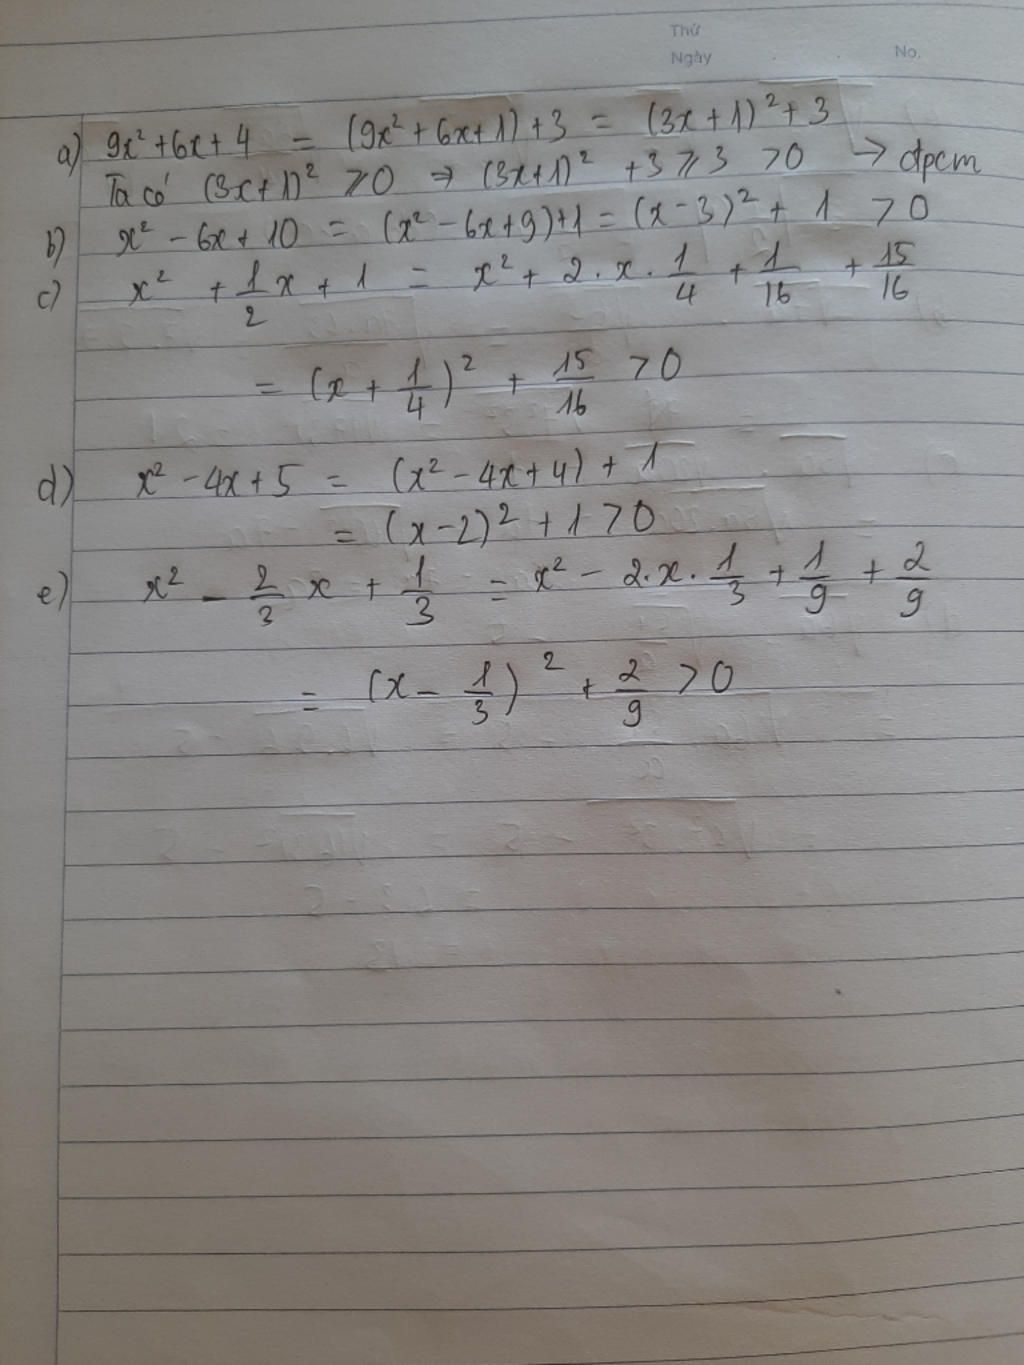 Thứ
Ngày No.
a) 9x² + 6x + 4 = (9x² + 6x + 1) + 3 = (3x + 1)² + 3
Ta có (3x+1)² ⩾ 0 ⇒ (3x+1)² + 3 ⩾ 3 > 0 → đpcm
b) x² - 6x + 10 = (x² - 6x + 9) + 1 = (x - 3)² + 1 > 0
c) x² + 1/2 x + 1 = x² + 2 . x . 1/4 + 1/16 + 15/16
= (x + 1/4)² + 15/16 > 0
d) x² - 4x + 5 = (x² - 4x + 4) + 1
= (x - 2)² + 1 > 0
e) x² - 2/3 x + 1/3 = x² - 2 . x . 1/3 + 1/9 + 2/9
= (x - 1/3)² + 2/9 > 0